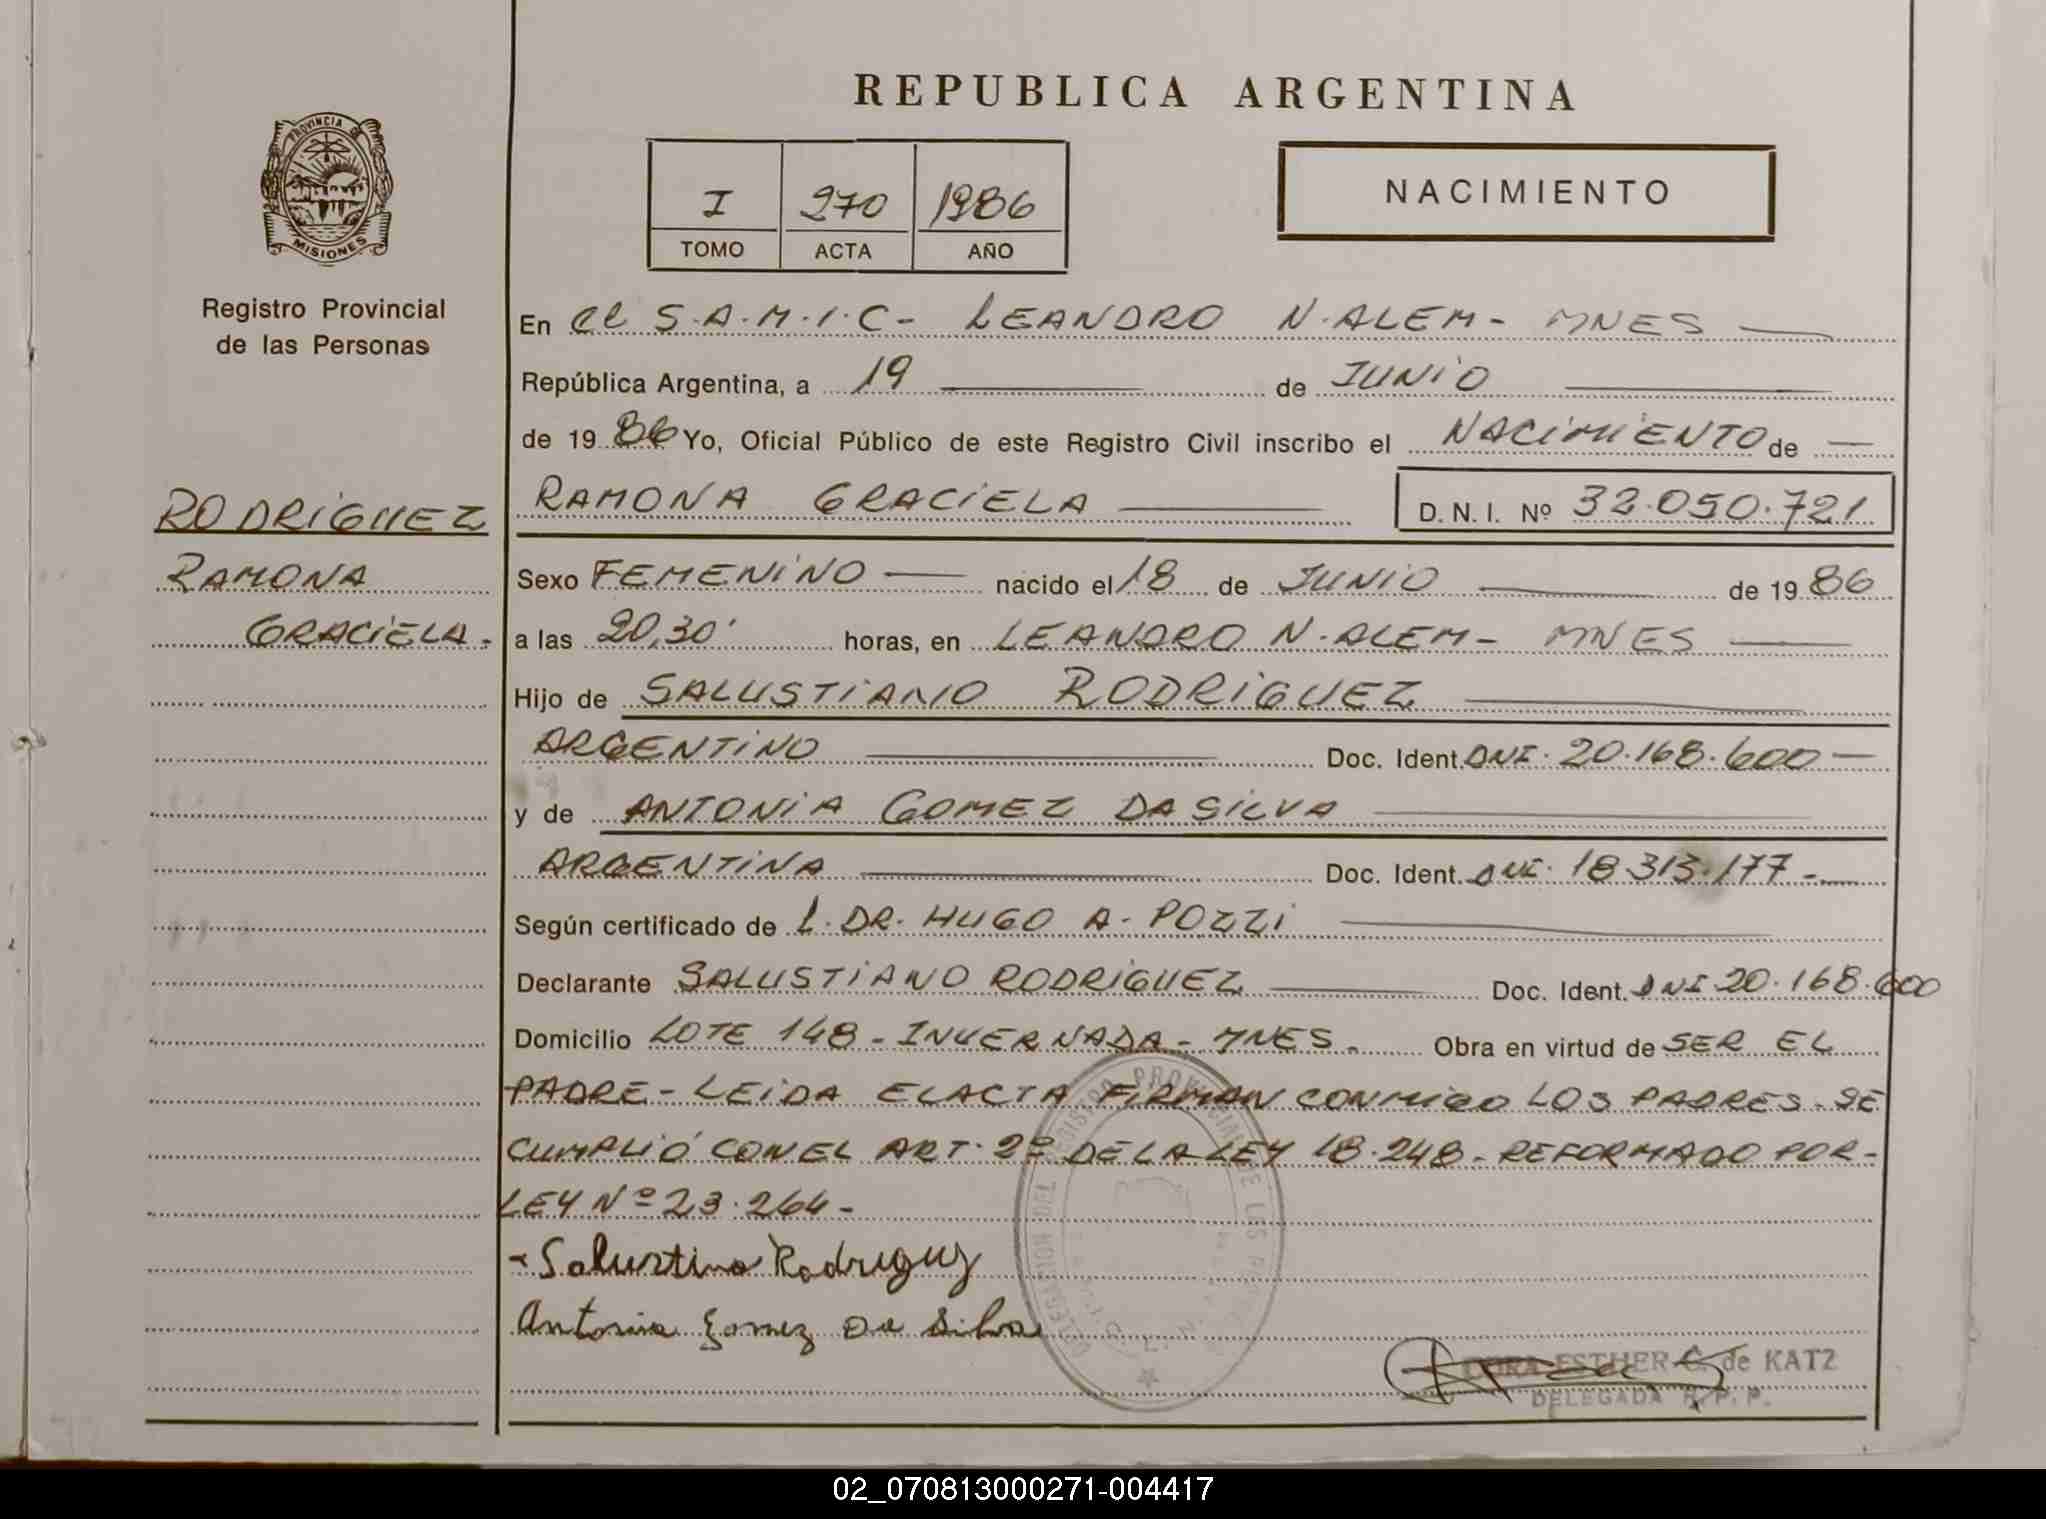 REPUBLICA ARGENTINA
PROVINCIA DE
MISIONES
Registro Provincial
de las Personas
I 270 1986
TOMO ACTA AÑO
NACIMIENTO
En el S.A.M.I.C- LEANDRO N.ALEM- MNES
República Argentina, a 19 de JUNIO
de 1986 Yo, Oficial Público de este Registro Civil inscribo el NACIMIENTO de
RODRIGUEZ
RAMONA
GRACIELA.
RAMONA GRACIELA D.N.I. Nº 32.050.721
Sexo FEMENINO nacido el 18 de JUNIO de 1986
a las 20,30' horas, en LEANDRO N.ALEM- MNES
Hijo de SALUSTIANO RODRIGUEZ
ARGENTINO Doc. Ident. DNI. 20.168.600
y de ANTONIA GOMEZ DA SILVA
ARGENTINA Doc. Ident. DNI. 18.313.177
Según certificado de L. DR. HUGO A. POZZI
Declarante SALUSTIANO RODRIGUEZ Doc. Ident. DNI 20.168.600
Domicilio LOTE 148 - INVERNADA - MNES. Obra en virtud de SER EL
PADRE - LEIDA EL ACTA FIRMAN CONMIGO LOS PADRES. SE
CUMPLIÓ CON EL ART. 2º DE LA LEY 18.248 - REFORMADO POR-
LEY Nº 23.264-
Salustino Rodriguez
Antonia Gomez Da Silva
DELEGACION DEL REGISTRO PROVINCIAL DE LAS
ESTHER C. de KATZ
DELEGADA R.P.P.
02_070813000271-004417